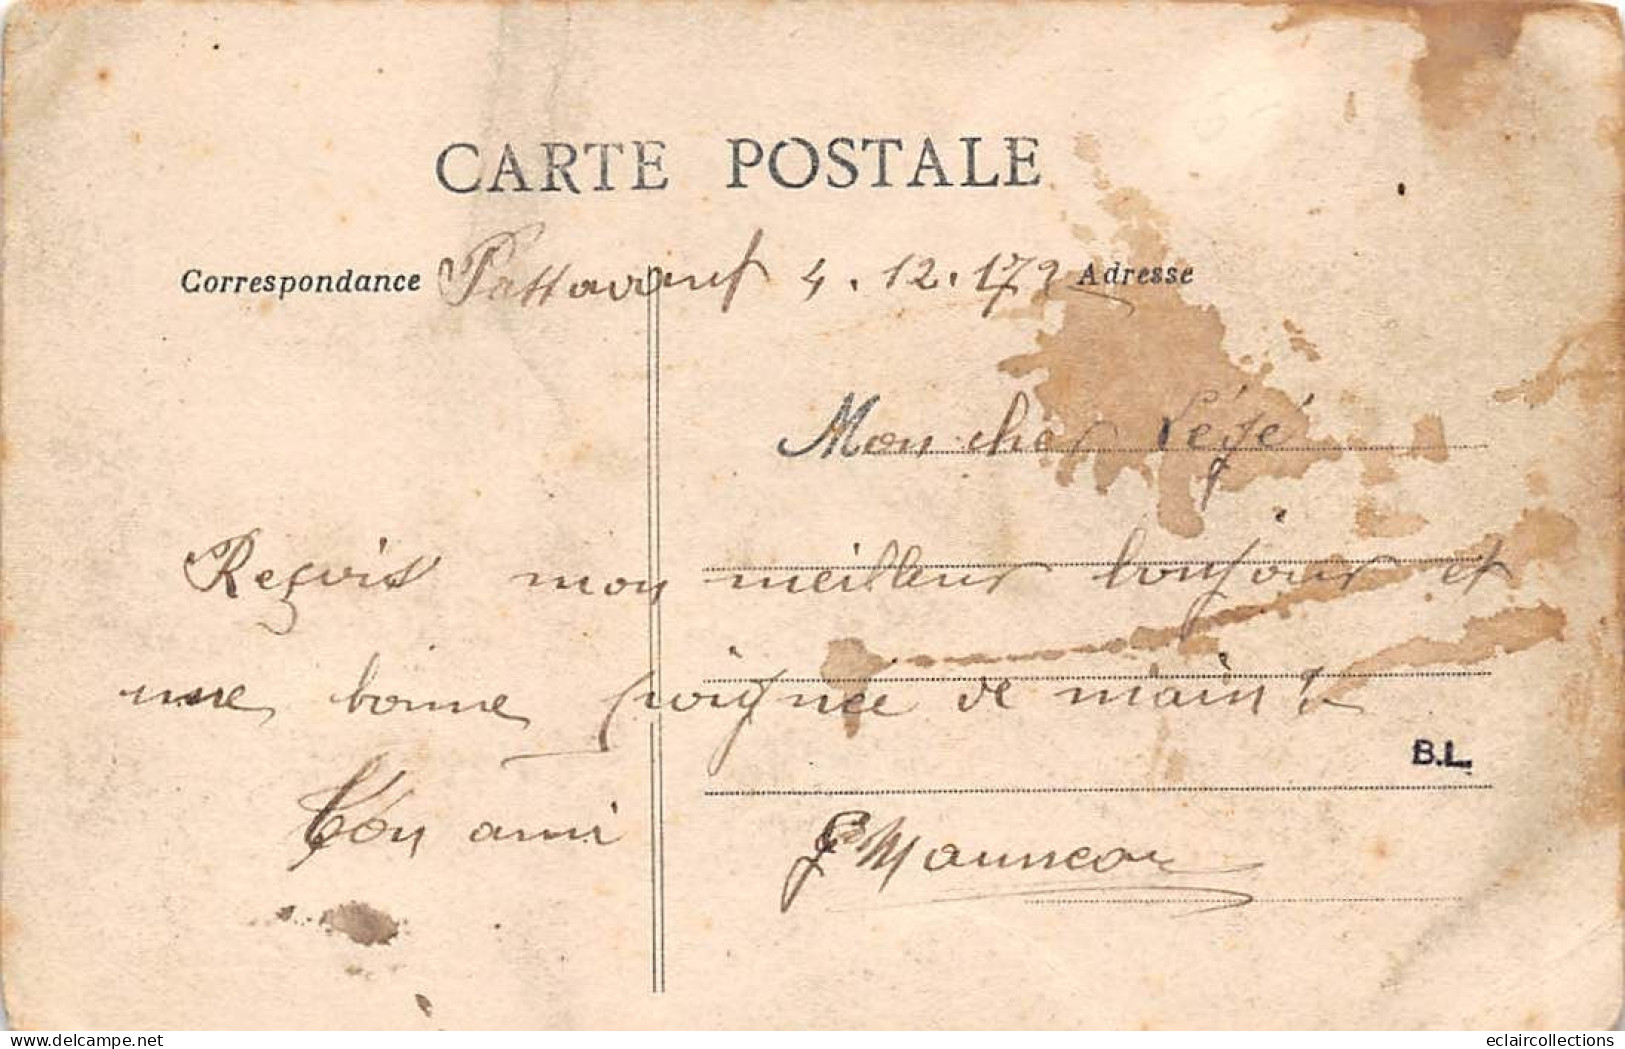 CARTE POSTALE
Correspondance 4.12.1 Adresse
Mon cher
Reçois mon meilleur bonjour et
une bonne poignée de main !
Ton ami
B.L.
delcampe.net
eclaircollections